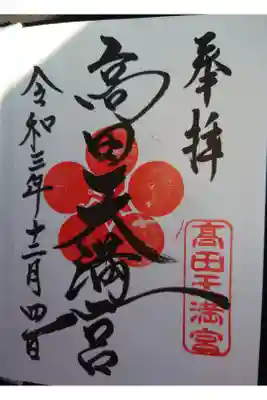 奉拝
高田天満宮
髙田天満宮
令和三年十二月四日